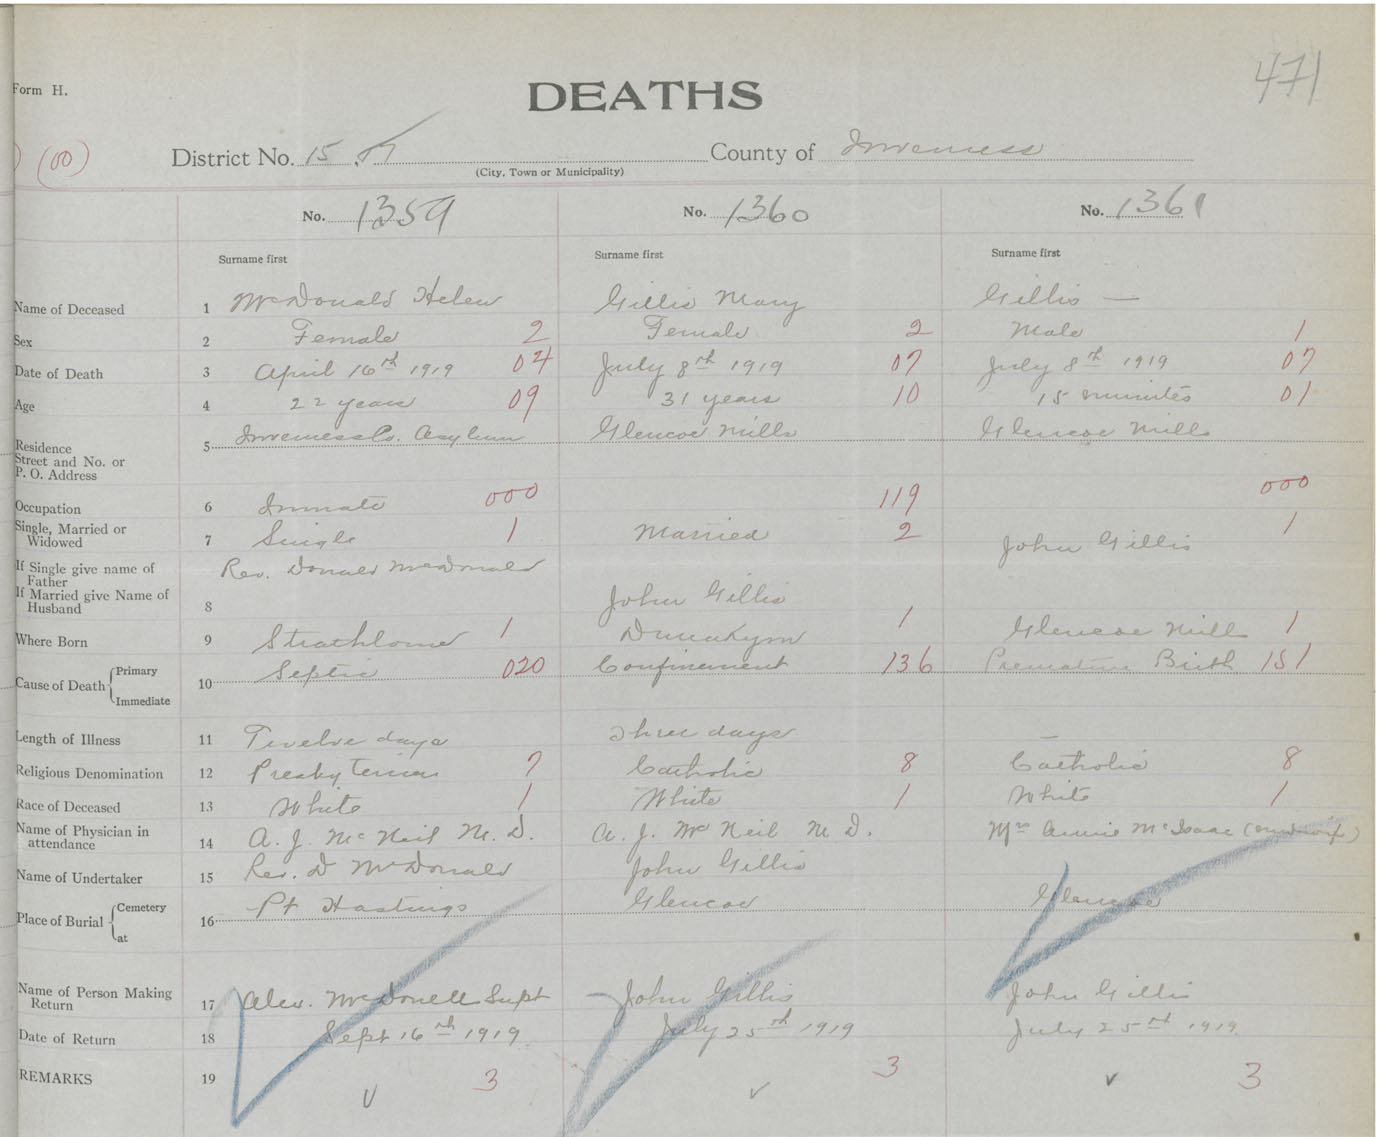 471
Form H.
DEATHS
(00)
District No. 15 County of Inverness
(City, Town or Municipality)
No. 1359 No. 1360 No. 1361
Surname first Surname first Surname first
Name of Deceased 1 McDonald Helen Gillis Mary Gillis —
Sex 2 Female 2 Female 2 Male 1
Date of Death 3 April 16th 1919 04 July 8th 1919 07 July 8th 1919 07
Age 4 22 years 09 31 years 10 15 minutes 01
Residence 5 Inverness Co. Asylum Glencoe Mills Glencoe Mills
Street and No. or
P. O. Address
Occupation 6 Inmate 000 119 000
Single, Married or
Widowed 7 Single 1 Married 2 John Gillis 1
If Single give name of
Father Rev. Donald McDonald
If Married give Name of
Husband 8 John Gillis
Where Born 9 Strathlorne 1 1 Glencoe Mill 1
Cause of Death Primary 10 Septic 020 Confinement 136 Premature Birth 151
Immediate
Length of Illness 11 Twelve days Three days —
Religious Denomination 12 Presbyterian 7 Catholic 8 Catholic 8
Race of Deceased 13 White 1 White 1 White 1
Name of Physician in
attendance 14 A. J. McNeil M. D. A. J. McNeil M. D. Mrs Annie McIsaac (midwife)
Name of Undertaker 15 Rev. D McDonald John Gillis
Place of Burial Cemetery 16 Pt Hastings Glencoe Glencoe
at
Name of Person Making
Return 17 Alex. McDonell Supt John Gillis John Gillis
Date of Return 18 Sept 16th 1919 July 25th 1919 July 25th 1919
REMARKS 19 3 3 3